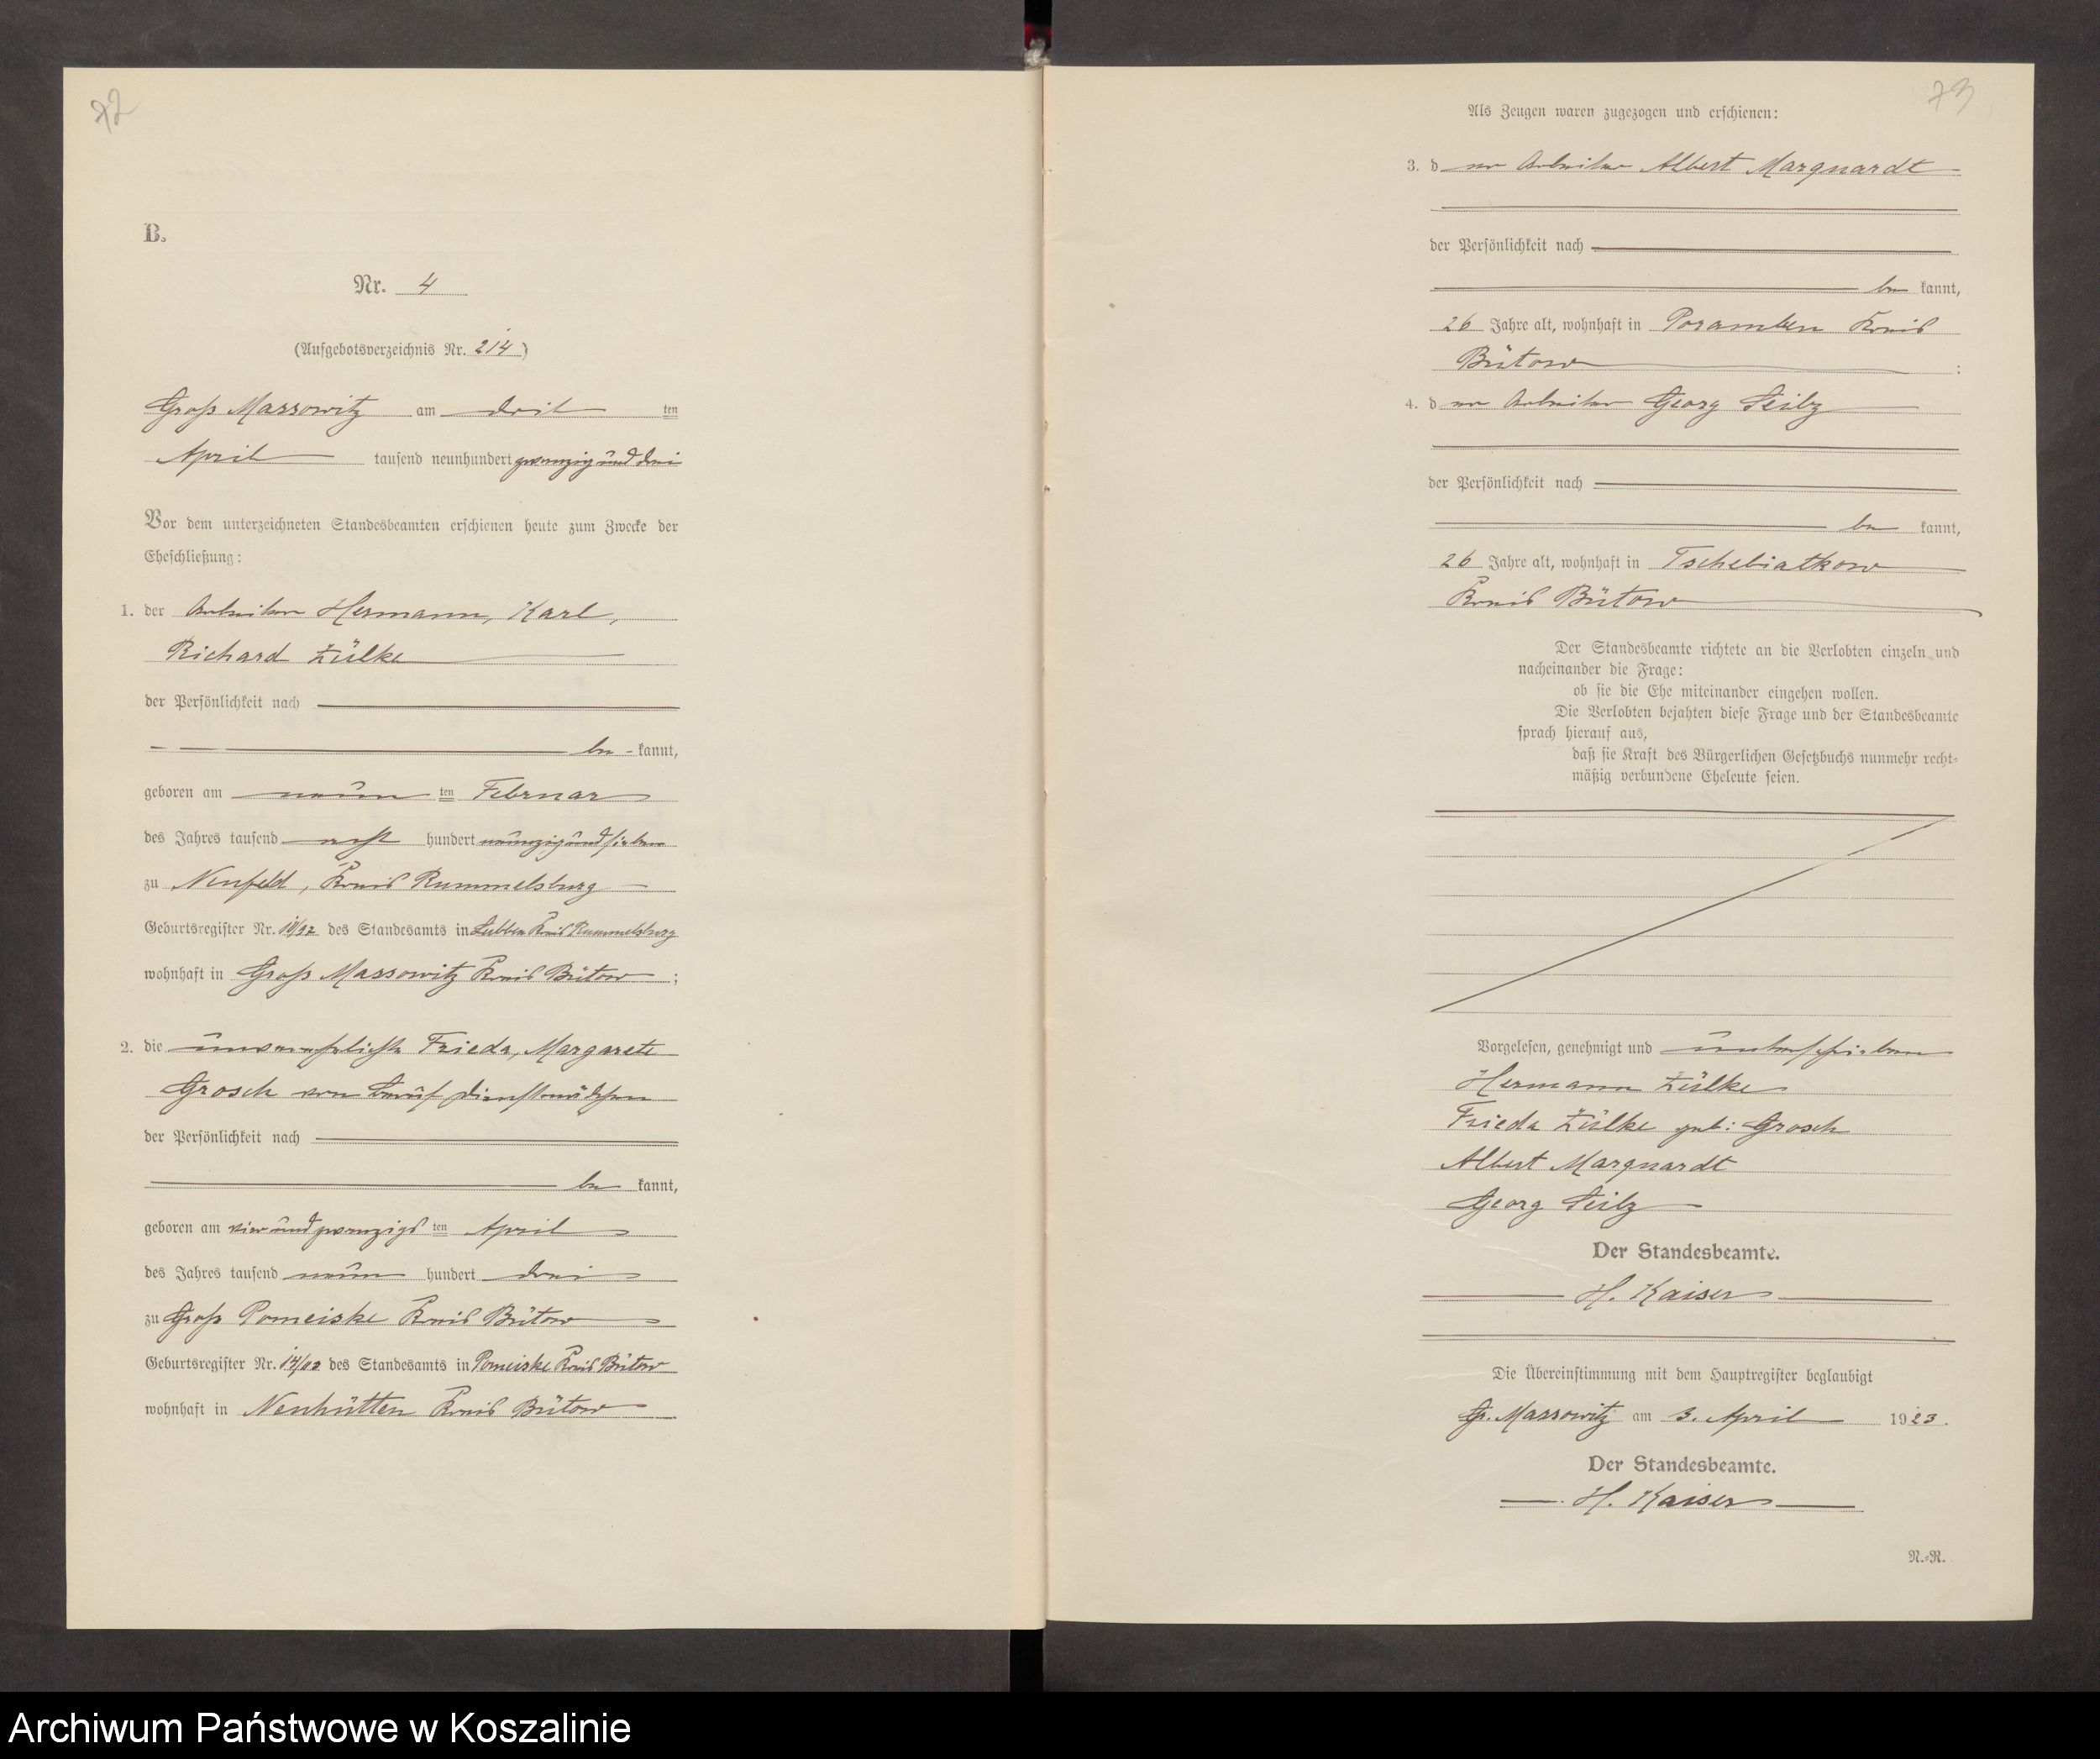 72
B.
Nr. 4
(Aufgebotsverzeichnis Nr. 214)
Groß Massowitz am drit ten
April tausend neunhundert zwanzig und drei
Vor dem unterzeichneten Standesbeamten erschienen heute zum Zwecke der
Eheschließung:
1. der Arbeiter Hermann, Karl,
Richard Zülke
der Persönlichkeit nach
be kannt,
geboren am neun ten Februar
des Jahres tausend acht hundert neunzig und sieben
zu Neufeld, Kreis Rummelsburg
Geburtsregister Nr. 10/97 des Standesamts in Lubben Kreis Rummelsburg
wohnhaft in Groß Massowitz Kreis Bütow ;
2. die unverehelichte Frieda, Margarete
Grosch von Beruf Dienstmädchen
der Persönlichkeit nach
be kannt,
geboren am vier und zwanzigs ten April
des Jahres tausend neun hundert drei
zu Groß Pomeiske Kreis Bütow
Geburtsregister Nr. 14/03 des Standesamts in Pomeiske Kreis Bütow
wohnhaft in Neuhütten Kreis Bütow
73
Als Zeugen waren zugezogen und erschienen:
3. d er Arbeiter Albert Marquardt
der Persönlichkeit nach
be kannt,
26 Jahre alt, wohnhaft in Poramben Kreis
Bütow ;
4. d er Arbeiter Georg Seilz
der Persönlichkeit nach
be kannt,
26 Jahre alt, wohnhaft in Tschebiatkow
Kreis Bütow
Der Standesbeamte richtete an die Verlobten einzeln und
nacheinander die Frage:
ob sie die Ehe miteinander eingehen wollen.
Die Verlobten bejahten diese Frage und der Standesbeamte
sprach hierauf aus,
daß sie Kraft des Bürgerlichen Gesetzbuchs nunmehr recht-
mäßig verbundene Eheleute seien.
Vorgelesen, genehmigt und unterschrieben
Hermann Zülke
Frieda Zülke geb: Grosch
Albert Marquardt
Georg Seilz
Der Standesbeamte.
H. Kaiser
Die Übereinstimmung mit dem Hauptregister beglaubigt
Gr. Massowitz am 3. April 1923.
Der Standesbeamte.
H. Kaiser
N.-R.
Archiwum Państwowe w Koszalinie